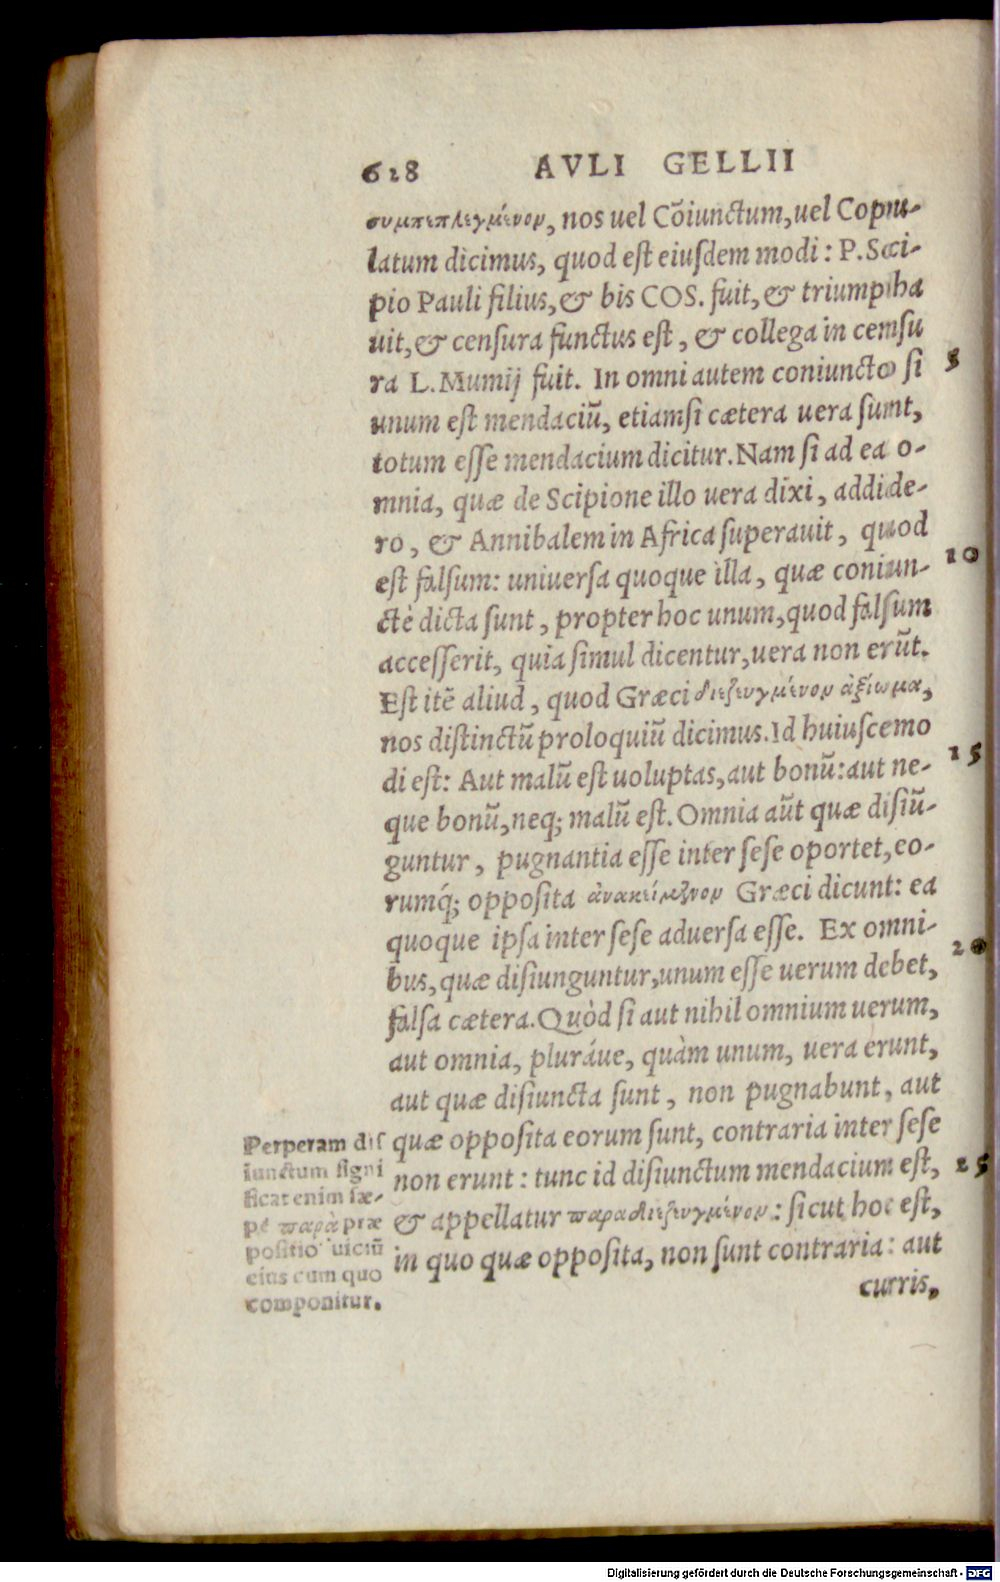 628 AVLI GELLII
συμπεπλεγμένον, nos uel Cõiunctum, uel Copu-
latum dicimus, quod est eiusdem modi: P. Sci-
pio Pauli filius, & bis COS. fuit, & triumpha
uit, & censura functus est, & collega in censu
ra L. Mumij fuit. In omni autem coniuncto si 5
unum est mendaciũ, etiamsi cætera uera sunt,
totum esse mendacium dicitur. Nam si ad ea o-
mnia, quæ de Scipione illo uera dixi, addide-
ro, & Annibalem in Africa superauit, quod
est falsum: uniuersa quoque illa, quæ coniun- 10
ctè dicta sunt, propter hoc unum, quod falsum
accesserit, quia simul dicentur, uera non erũt.
Est itẽ aliud, quod Græci διεζευγμένον ἀξίωμα,
nos distinctũ proloquiũ dicimus. Id huiuscemo
di est: Aut malũ est uoluptas, aut bonũ: aut ne- 15
que bonũ, neq; malũ est. Omnia aũt quæ disiũ-
guntur, pugnantia esse inter sese oportet, eo-
rumq́; opposita ἀνακείμενον Græci dicunt: ea
quoque ipsa inter sese aduersa esse. Ex omni-
bus, quæ disiunguntur, unum esse uerum debet, 20
falsa cætera. Quòd si aut nihil omnium uerum,
aut omnia, pluráue, quàm unum, uera erunt,
aut quæ disiuncta sunt, non pugnabunt, aut
quæ opposita eorum sunt, contraria inter sese
non erunt: tunc id disiunctum mendacium est, 25
& appellatur παραδιεζευγμένον: sicut hoc est,
in quo quæ opposita, non sunt contraria: aut
curris,
Perperam dis
iunctum signi
ficat enim sæ-
pe παρὰ præ
positio uiciũ
eius cum quo
componitur.
Digitalisierung gefördert durch die Deutsche Forschungsgemeinschaft - DFG